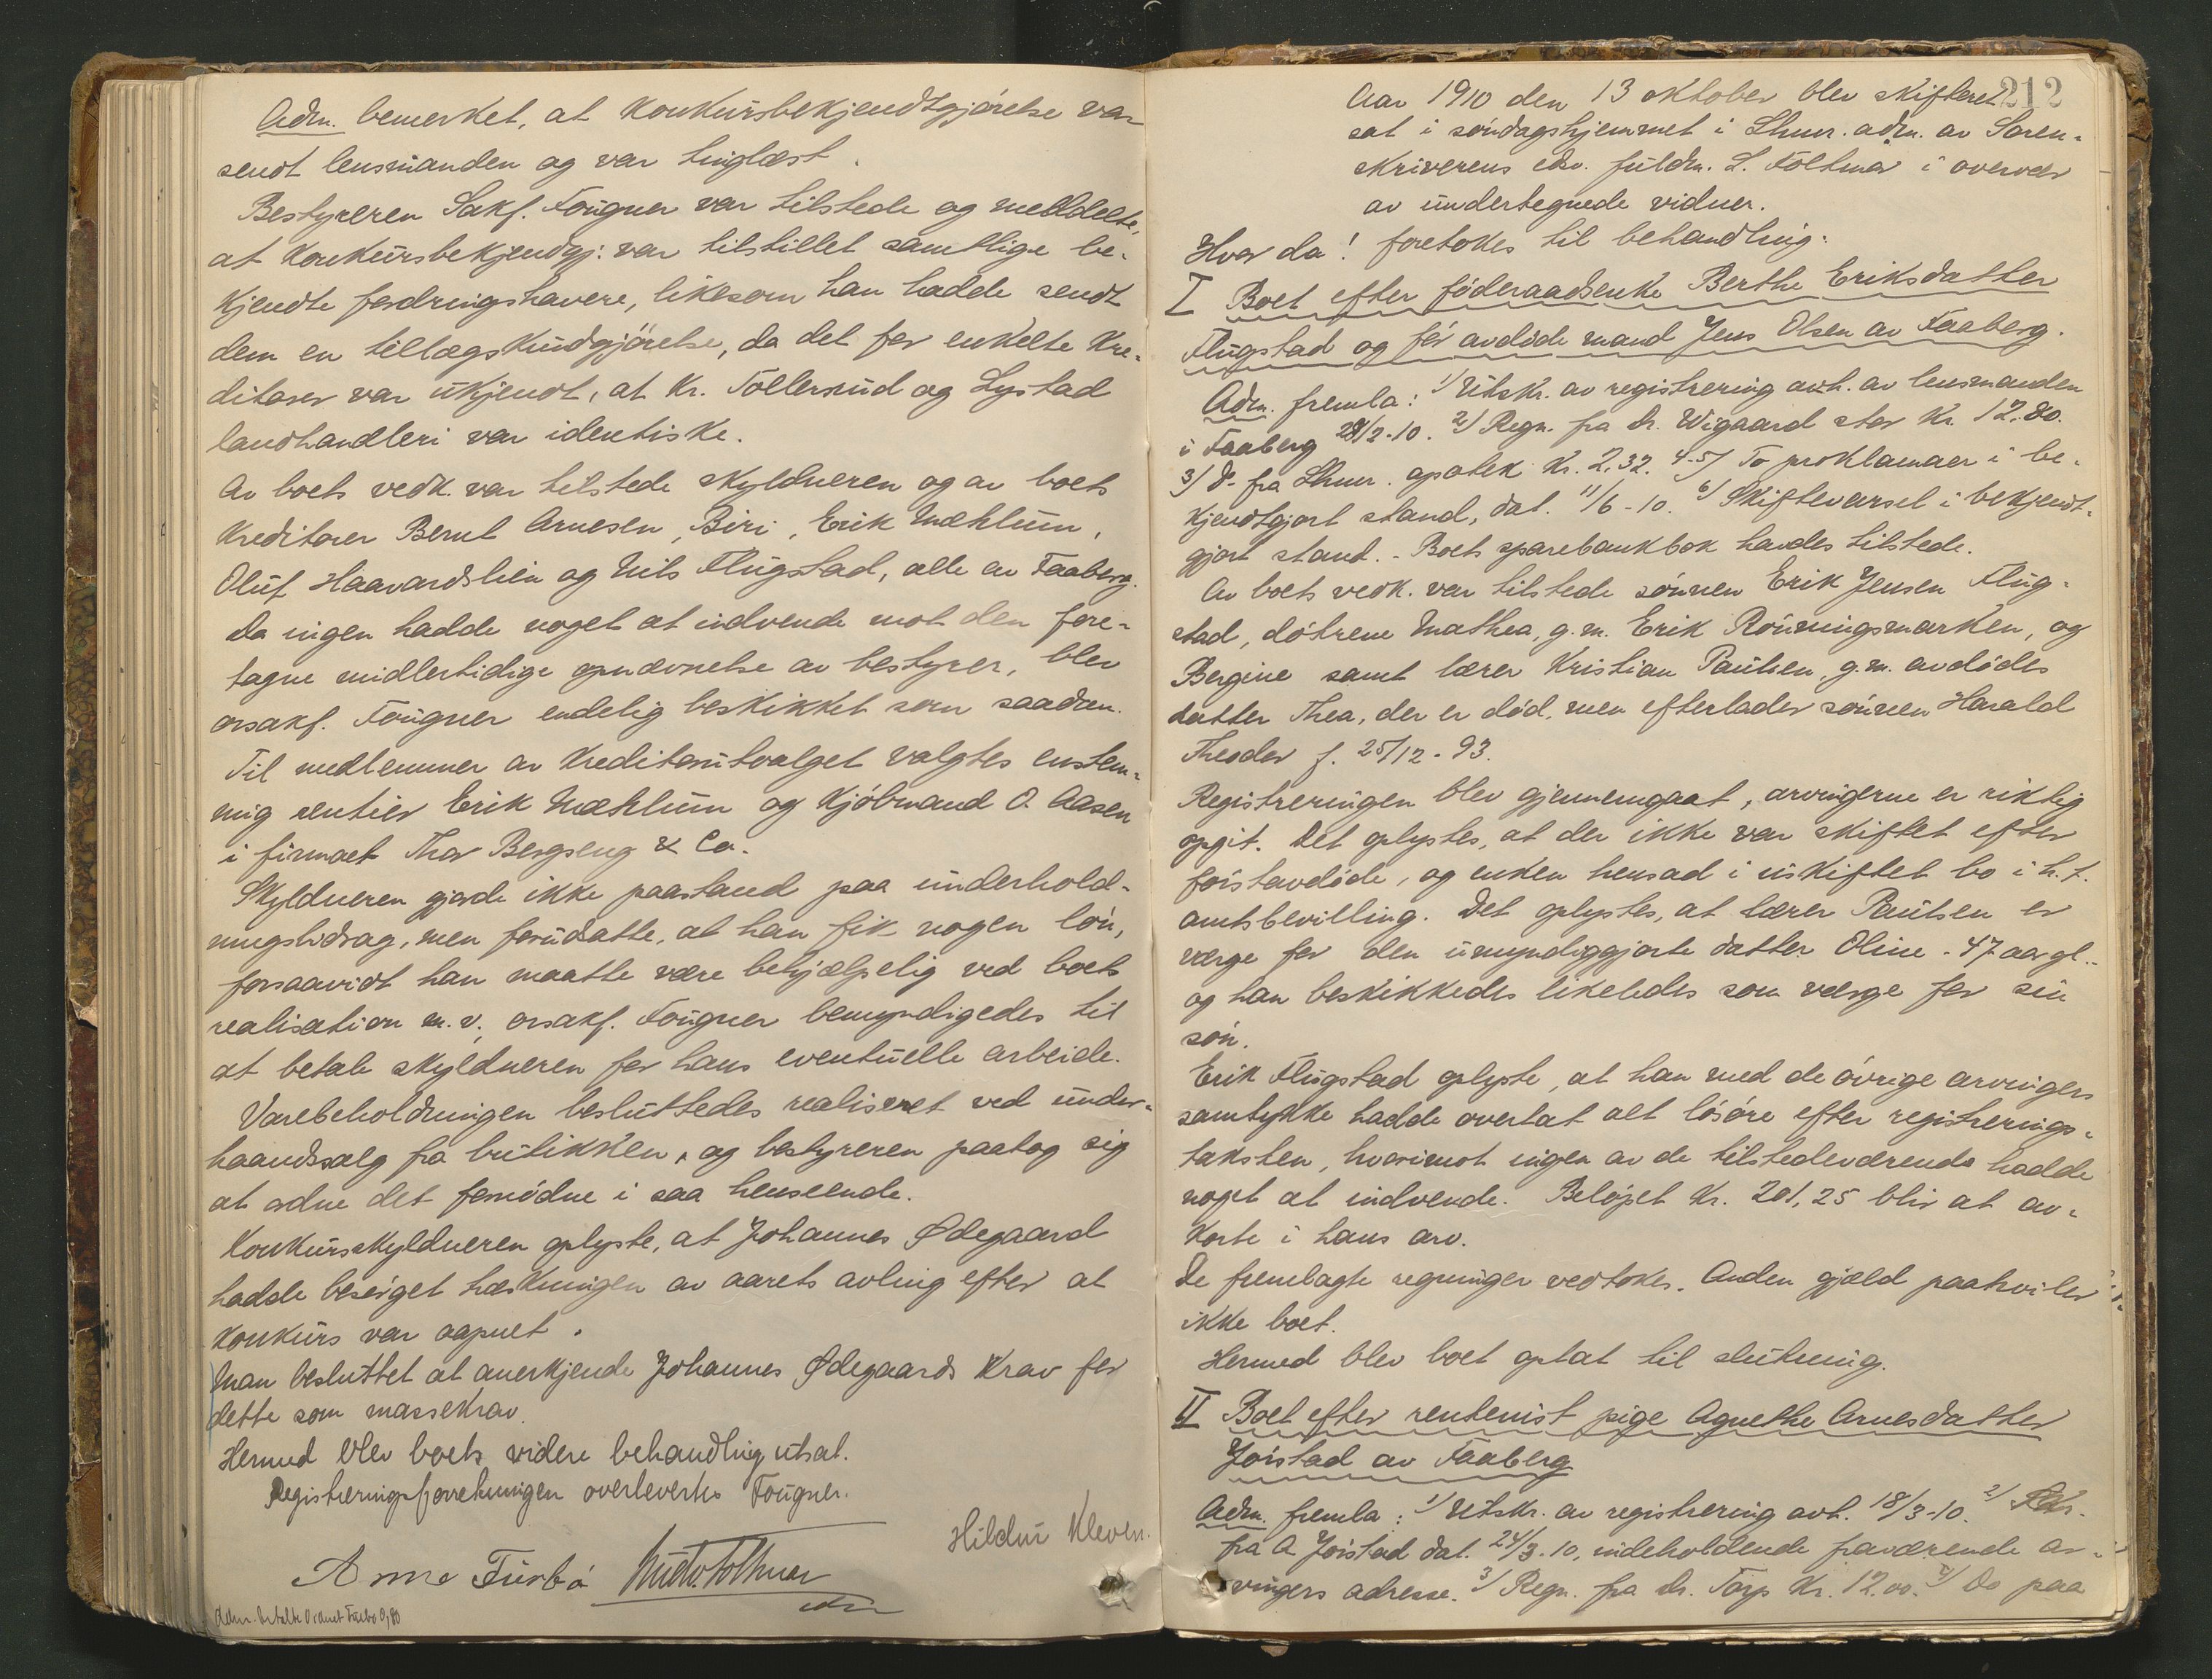 Adm. bemerket, at konkursbekjendtgjørelse var
sendt lensmanden og var tinglæst.
Bestyreren Sakf. Fougner var tilstede og meddelte,
at konkursbekjendgj: var tilstillet samtlige be-
kjendte fordringshavere, likesom han hadde sendt
dem en tillægskundgjørelse, da det for enkelte kre-
ditorer var ukjendt, at Kr. Tollersrud og Lystad
landhandleri var identiske.
Av boets vedk. var tilstede skyldneren og av boets
kreditorer Bernt Arnesen, Biri, Erik Mæhlum,
Oluf Haavardslien og Nils Flugstad, alle av Faaberg.
Da ingen hadde noget at indvende mot den fore-
tagne midlertidige opnævnelse av bestyrer, blev
orsakf. Fougner endelig beskikket som saadan.
Til medlemmer av kreditorutvalget valgtes enstem-
mig rentier Erik Mæhlum og kjøbmand O. Aasen
i firmaet Thor Bergseng & Co.
Skyldneren gjorde ikke paastand paa underhold-
ningsbidrag, men forudsatte, at han fik nogen løn,
forsaavidt han maatte være behjælpelig ved boets
realisation m.v. orsakf. Fougner bemyndigedes til
at betale skyldneren for hans eventuelle arbeide.
Varebeholdningen besluttedes realiseret ved under-
haandssalg fra butikken, og bestyreren paatog sig
at ordne det fornødne i saa henseende.
Konkursskyldneren oplyste, at Johannes Ødegaard
hadde besørget træskningen av aarets avling efter at
konkurs var aapnet.
Man besluttet at anerkjende Johannes Ødegaards krav for
dette som massekrav.
Hermed blev boets videre behandling utsat.
Registreringsforretningen overlevertes Fougner.
Hildur Kleven.
Anne Furbø
Adm. betalte Ordnet Furbo 0,80
212
Aar 1910 den 13 oktober blev skifteret
sat i søndagshjemmet i Lhmr. adm. av Soren-
skriverens edsv. fuldm. L. Foltmar i overvær
av undertegnede vidner.
Hvor da! foretokes til behandling:
I Boet efter føderaadsenke Berthe Eriksdatter
Flugstad og før avdøde mand Jens Olsen av Faaberg.
Adm. fremla: 1/ Utskr. av registrering avh. av lensmanden
i Faaberg 28/2-10. 2/ Regn. fra Dr. Wigaard stor Kr. 12.80.
3/ D- fra Lhmr. apotek Kr. 2,32. 4-5/ To proklamaer i be-
kjendtgjort stand, dat. 11/6-10. 6/ Skiftevarsel i bekjendt-
gjort stand. - Boets sparebankbok havdes tilstede.
Av boets vedk. var tilstede sønnen Erik Jensen Flug-
stad, døtrene Mathea, g.m. Erik Rønningsmarken, og
Bergine samt lærer Kristian Paulsen, g.m. avdødes
datter Thea, der er død, men efterlader sønnen Harald
Theodor f. 25/12-93.
Registreringen blev gjennemgaat, arvingerne er riktig
opgit. Det oplystes, at der ikke var skiftet efter
førstavdøde, og enken hensad i uskiftet bo i h.t.
amtsbevilling. Det oplystes, at lærer Paulsen er
værge for den umyndiggjorte datter Oline - 47 aar gl.-
og han beskikkedes likeledes som værge for sin
søn.
Erik Flugstad oplyste, at han med de øvrige arvingers
samtykke hadde overtat alt løsøre efter registrerings-
taksten, hvorimot ingen av de tilstedeværende hadde
noget at indvende. Beløpet Kr. 201,25 blir at av-
korte i hans arv.
De fremlagte regninger vedtokes. Anden gjæld paahviler
ikke boet.
Hermed blev boet optat til slutning.
II Boet efter rentenist pige Agnethe Arnesdatter
Jørstad av Faaberg
Adm. fremla: 1/ Utskr. av registrering avh. 18/3-10. 2/
fra A Jørstad dat. 24/3-10, indeholdende fraværende ar-
vingers adresse. 3/ Regn. fra Dr. Torp Kr. 12.00. 4/ Do paa